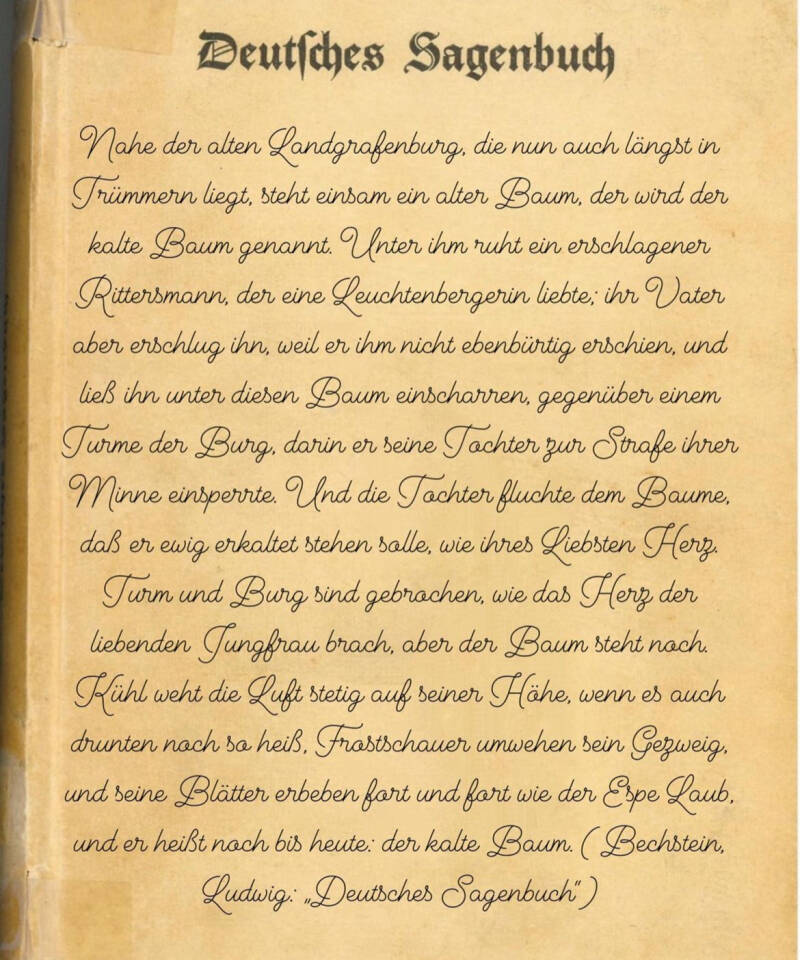 Deutsches Sagenbuch
Nahe der alten Landgrafenburg, die nun auch längst in
Trümmern liegt, steht einsam ein alter Baum, der wird der
kalte Baum genannt. Unter ihm ruht ein erschlagener
Rittersmann, der eine Leuchtenbergerin liebte; ihr Vater
aber erschlug ihn, weil er ihm nicht ebenbürtig erschien, und
ließ ihn unter diesen Baum einscharren, gegenüber einem
Turme der Burg, darin er seine Tochter zur Strafe ihrer
Minne einsperrte. Und die Tochter fluchte dem Baume,
daß er ewig erkaltet stehen solle, wie ihres Liebsten Herz.
Turm und Burg sind gebrochen, wie das Herz der
liebenden Jungfrau brach, aber der Baum steht noch.
Kühl weht die Luft stetig auf seiner Höhe, wenn es auch
drunten noch so heiß, Frostschauer umwehen sein Gezweig,
und seine Blätter erbeben fort und fort wie der Espe Laub,
und er heißt noch bis heute: der kalte Baum. ( Bechstein,
Ludwig: „Deutsches Sagenbuch“ )